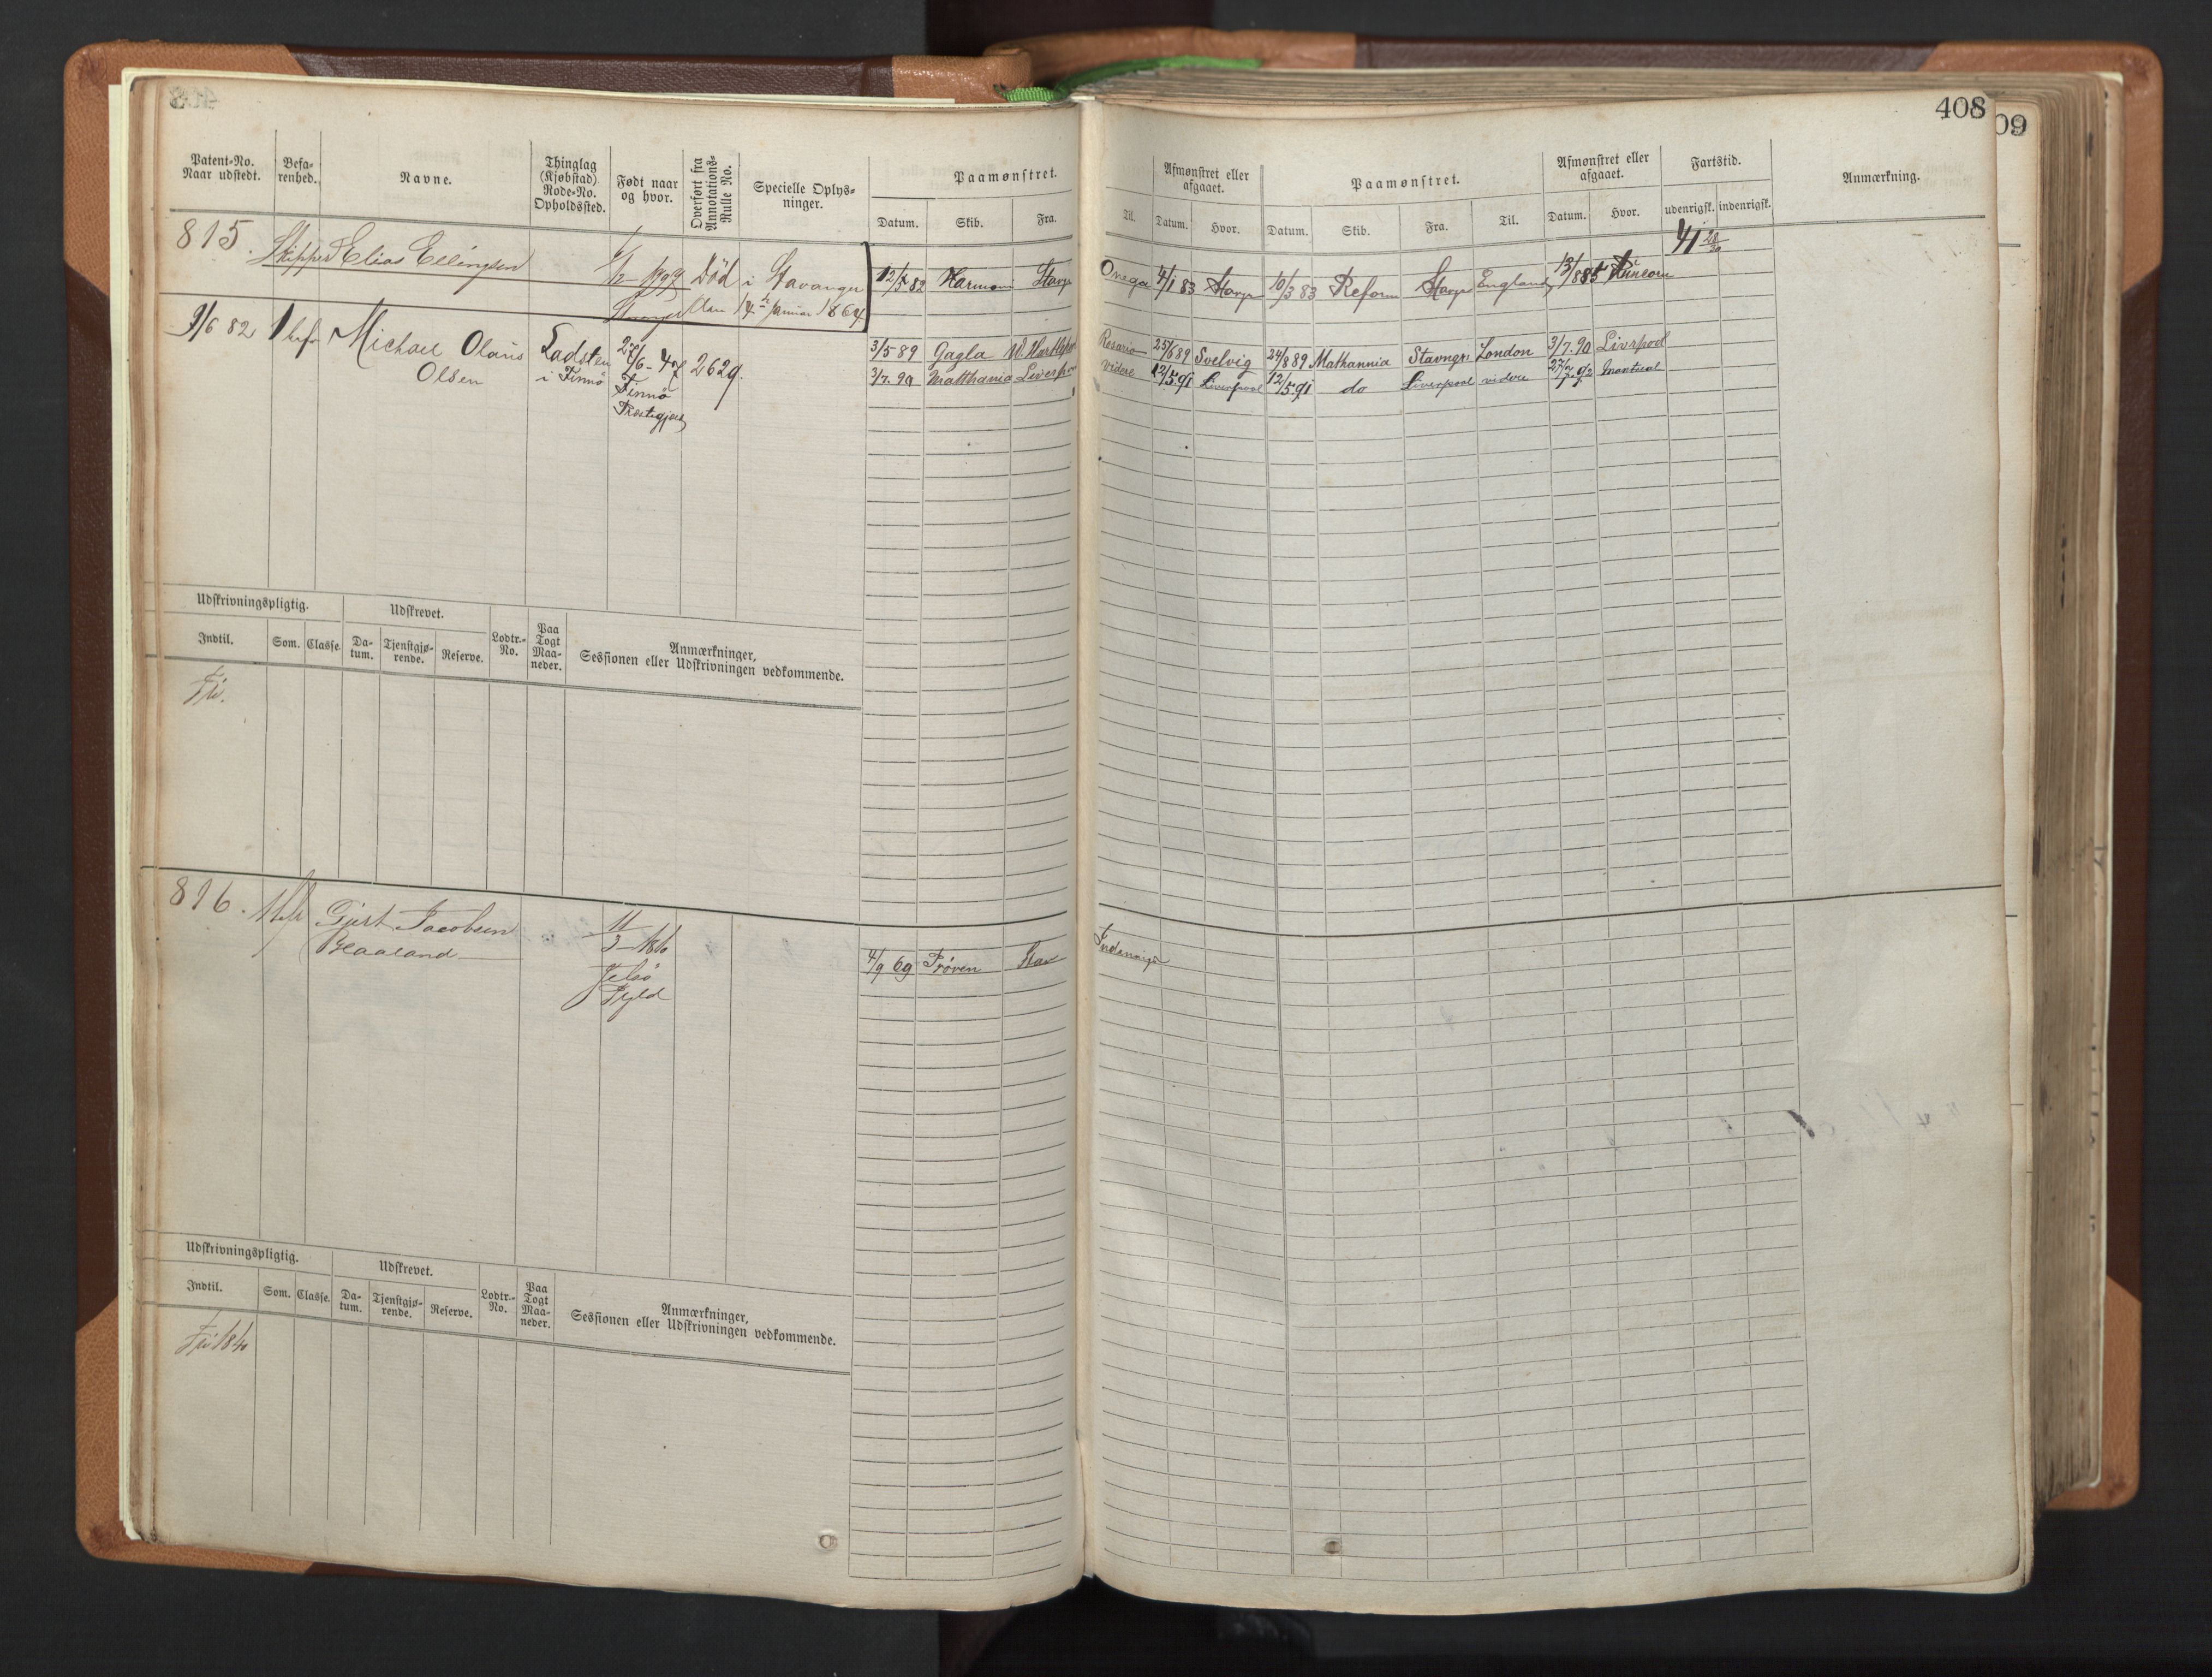 408
09
Patent-No.
Naar udstedt.
Befa-
renhed.
Navne.
Thinglag
(Kjøbstad)
Rode-No.
Opholdssted.
Født naar
og hvor.
Overført fra
Annotations-
Rulle No.
Specielle Oplys-
ninger.
Paamønstret.
Datum.
Skib.
Fra.
Til.
Afmønstret eller
afgaaet.
Datum.
Hvor.
Paamønstret.
Datum.
Skib.
Fra.
Til.
Afmønstret eller
afgaaet.
Datum.
Hvor.
Fartstid.
udenrigsk.
indenrigsk.
Anmærkning.
815.
Skipper Elias Ellingsen
Død i Stavanger
den 14de Januar 1864
12/5 82 Harmoni Stavgr Onega 4/1 83 Stavgr 10/3 83 Reform Stavgr England 13/8 85 Runcorn 41 28/30
9/6 82 1 bef Michael Olaus
Olsen
Ladsten
i Finnø
27/6-47
Finnø
Præstegjeld
2629.
3/5 89 Gagla W. Hartlpol Rosario 25/6 89 Svelvig 24/8 89 Mathannia Stavngr London 3/7.90 Liverpool
3/7.90 Matthania Liverpol videre 12/5.91 Liverpool 12/5.91 do Liverpool videre 27/7.92 Montreal
Udskrivningspligtig.
Udskrevet.
Indtil.
Som.
Classe
Da-
tum.
Tjenstgjø-
rende.
Reserve.
Lodtr.-
No.
Paa
Togt
Maa-
neder.
Anmærkninger,
Sessionen eller Udskrivningen vedkommende.
Fri.
816.
Gjert Jacobsen
Blaaland
11/3
Jelsø
Pgld
4/9 69 Prøven Stav Indenrigs
Udskrivningspligtig.
Udskrevet.
Indtil.
Som.
Classe.
Da-
tum.
Tjenstgjø-
rende.
Reserve.
Lodtr.-
No.
Paa
Togt
Maa-
neder.
Anmærkninger,
Sessionen eller Udskrivningen vedkommende.
Fri